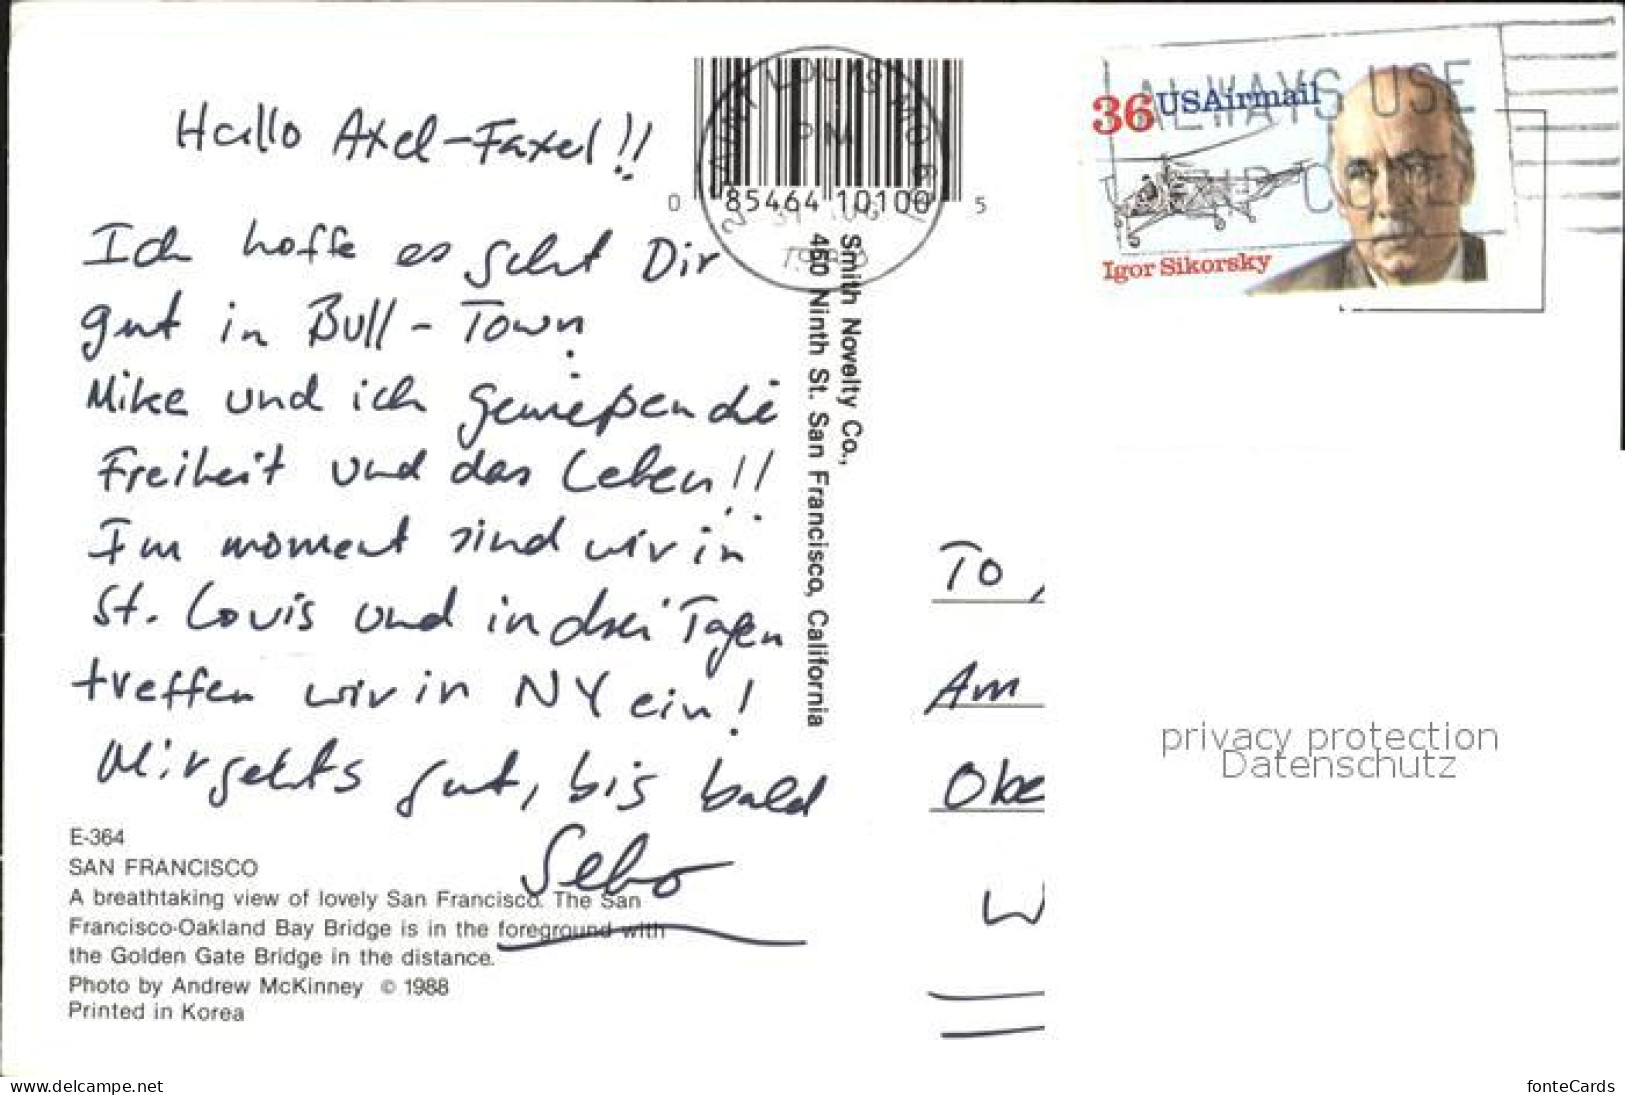 Hallo Axel-Faxel!!
Ich hoffe es geht Dir
gut in Bull-Town!
Mike und ich genießen die
Freiheit und das Leben!!
Im moment sind wir in
St. Louis und in drei Tagen
treffen wir in NY ein!
Mir gehts gut, bis bald
Sebo
E-364
SAN FRANCISCO
A breathtaking view of lovely San Francisco. The San
Francisco-Oakland Bay Bridge is in the foreground with
the Golden Gate Bridge in the distance.
Photo by Andrew McKinney © 1988
Printed in Korea
0 85464 10100 5
SAINT LOUIS MO
PM
Smith Novelty Co.,
460 Ninth St. San Francisco, California
36 USAirmail
Igor Sikorsky
ALWAYS USE
ZIP CODE
To
Am
Obe
W
privacy protection
Datenschutz
www.delcampe.net
fonteCards